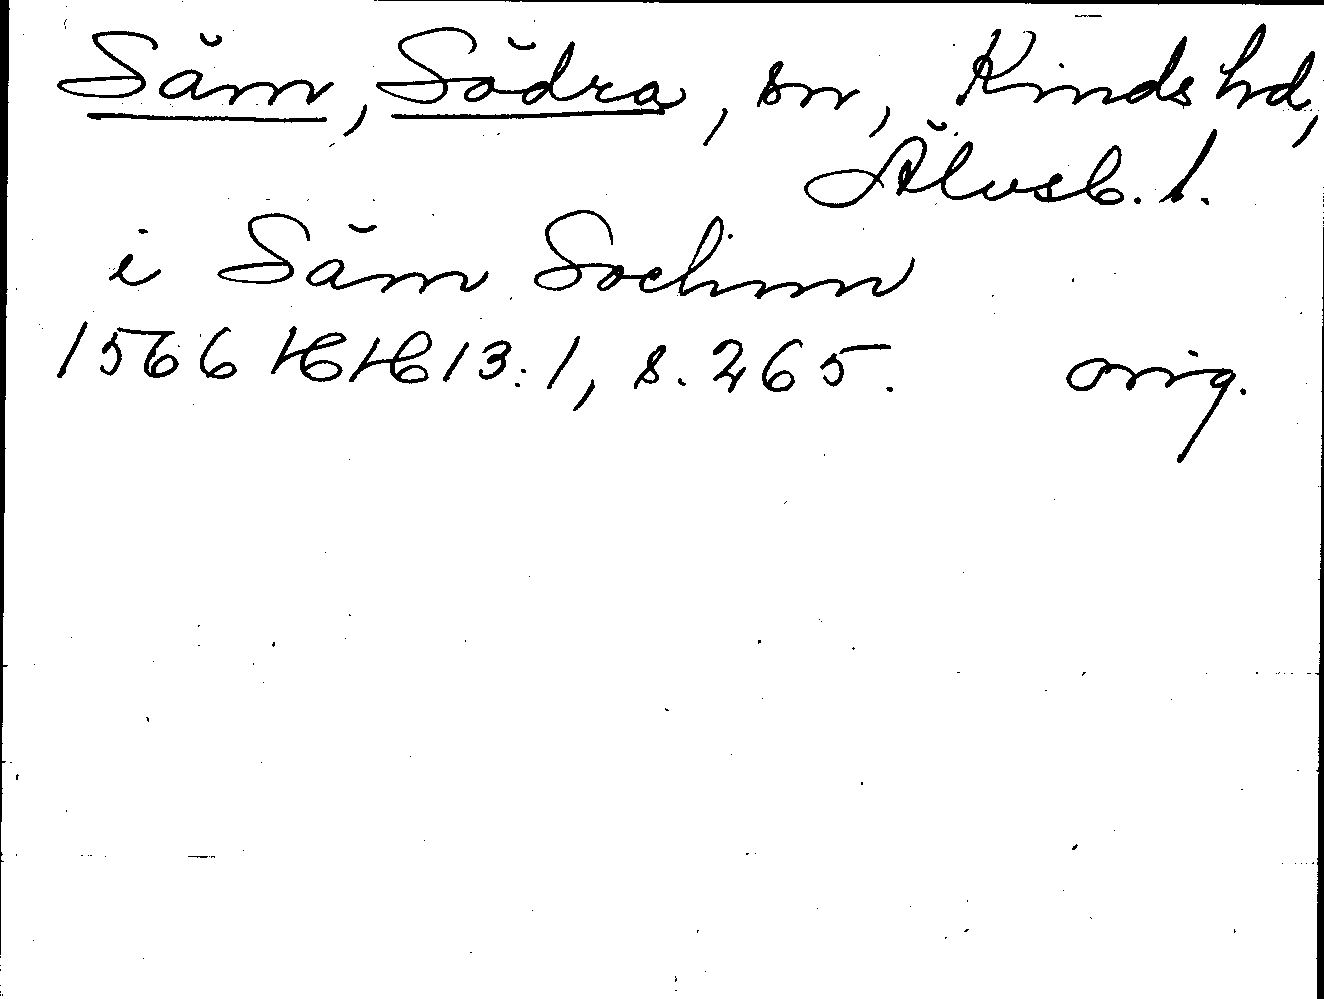 Säm, Södra, sn, Kinds hd,
Älvsb. l.
i Säm Sochnn
1566 HH 13:1, s. 265. orig.